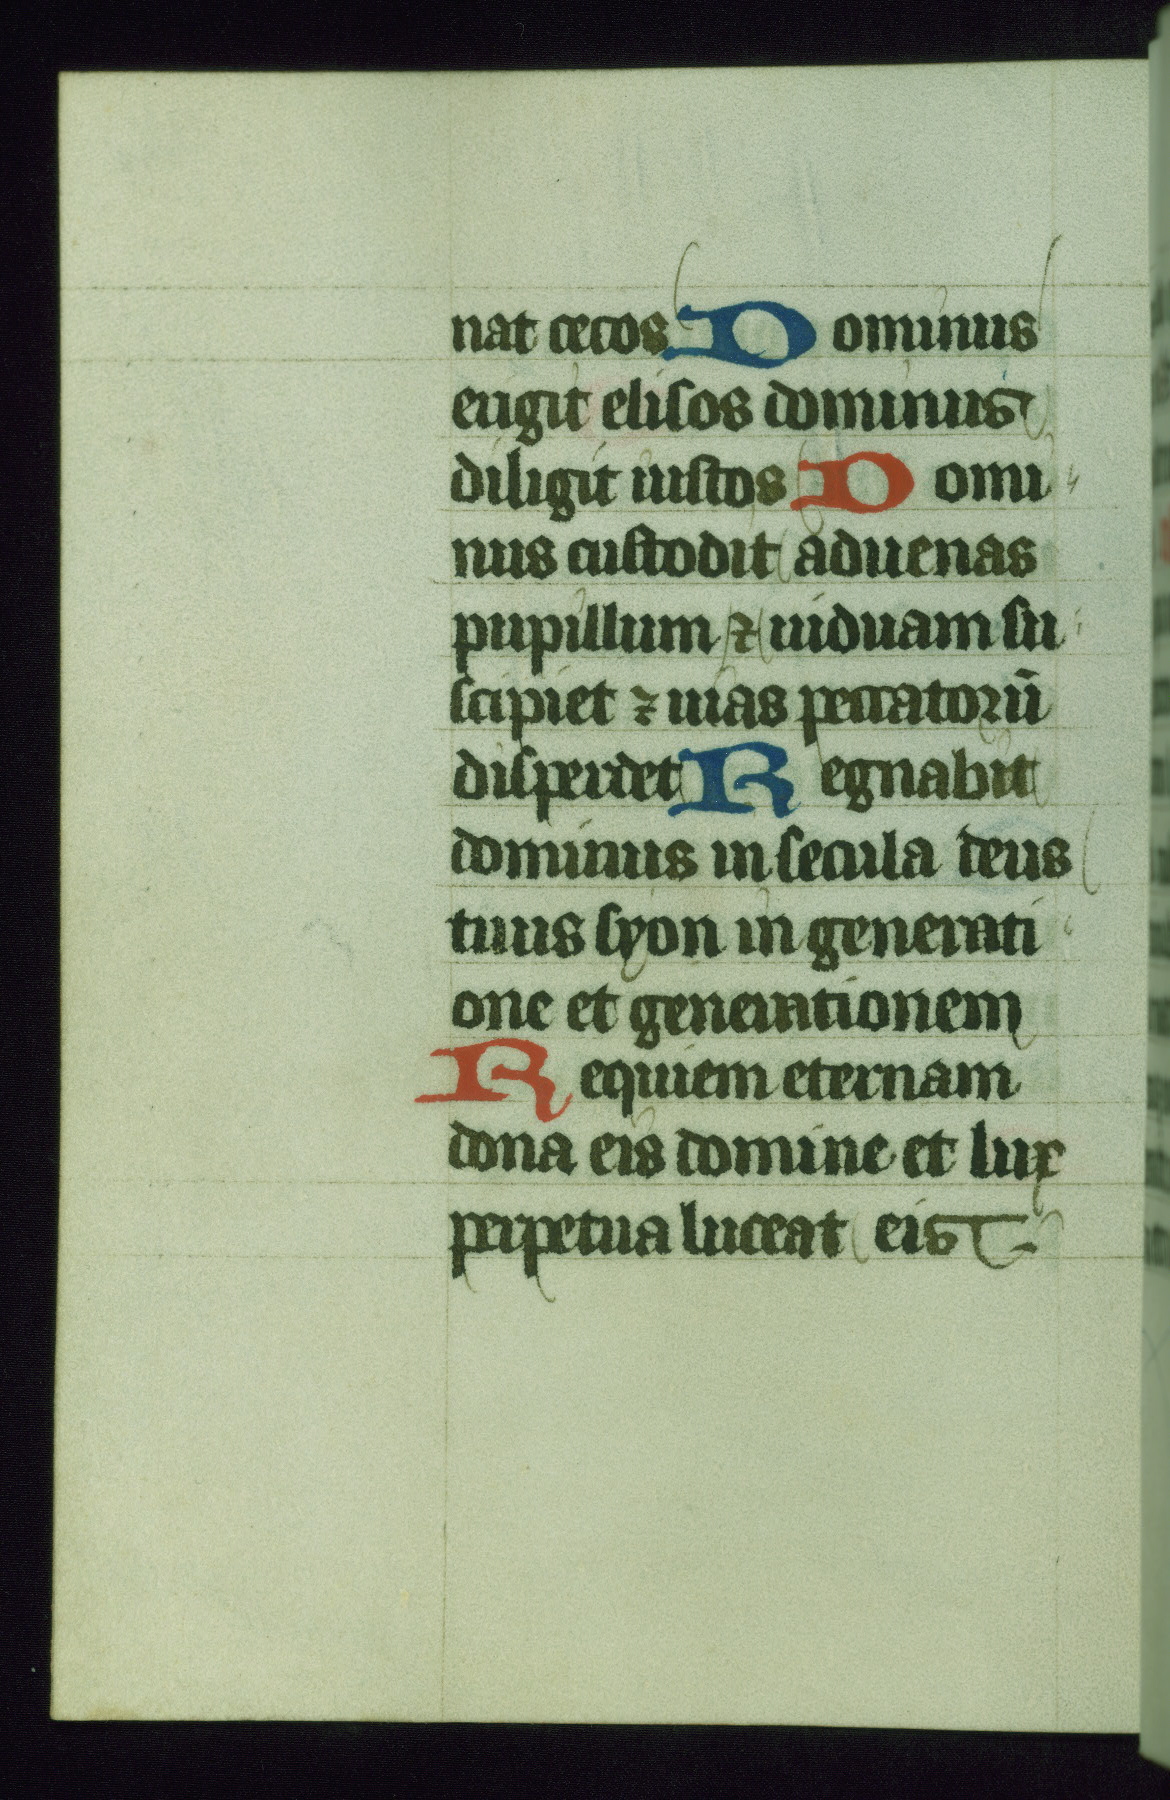 nat cecos Dominus
erigit elisos dominus
diligit iustos Domi
nus custodit aduenas
pupillum ⁊ uiduam su
scipiet ⁊ uias peccatorū
disperdet Regnabit
dominus in secula deus
tuus syon in generati
one et generationem
Requiem eternam
dona eis domine et lux
perpetua luceat eis